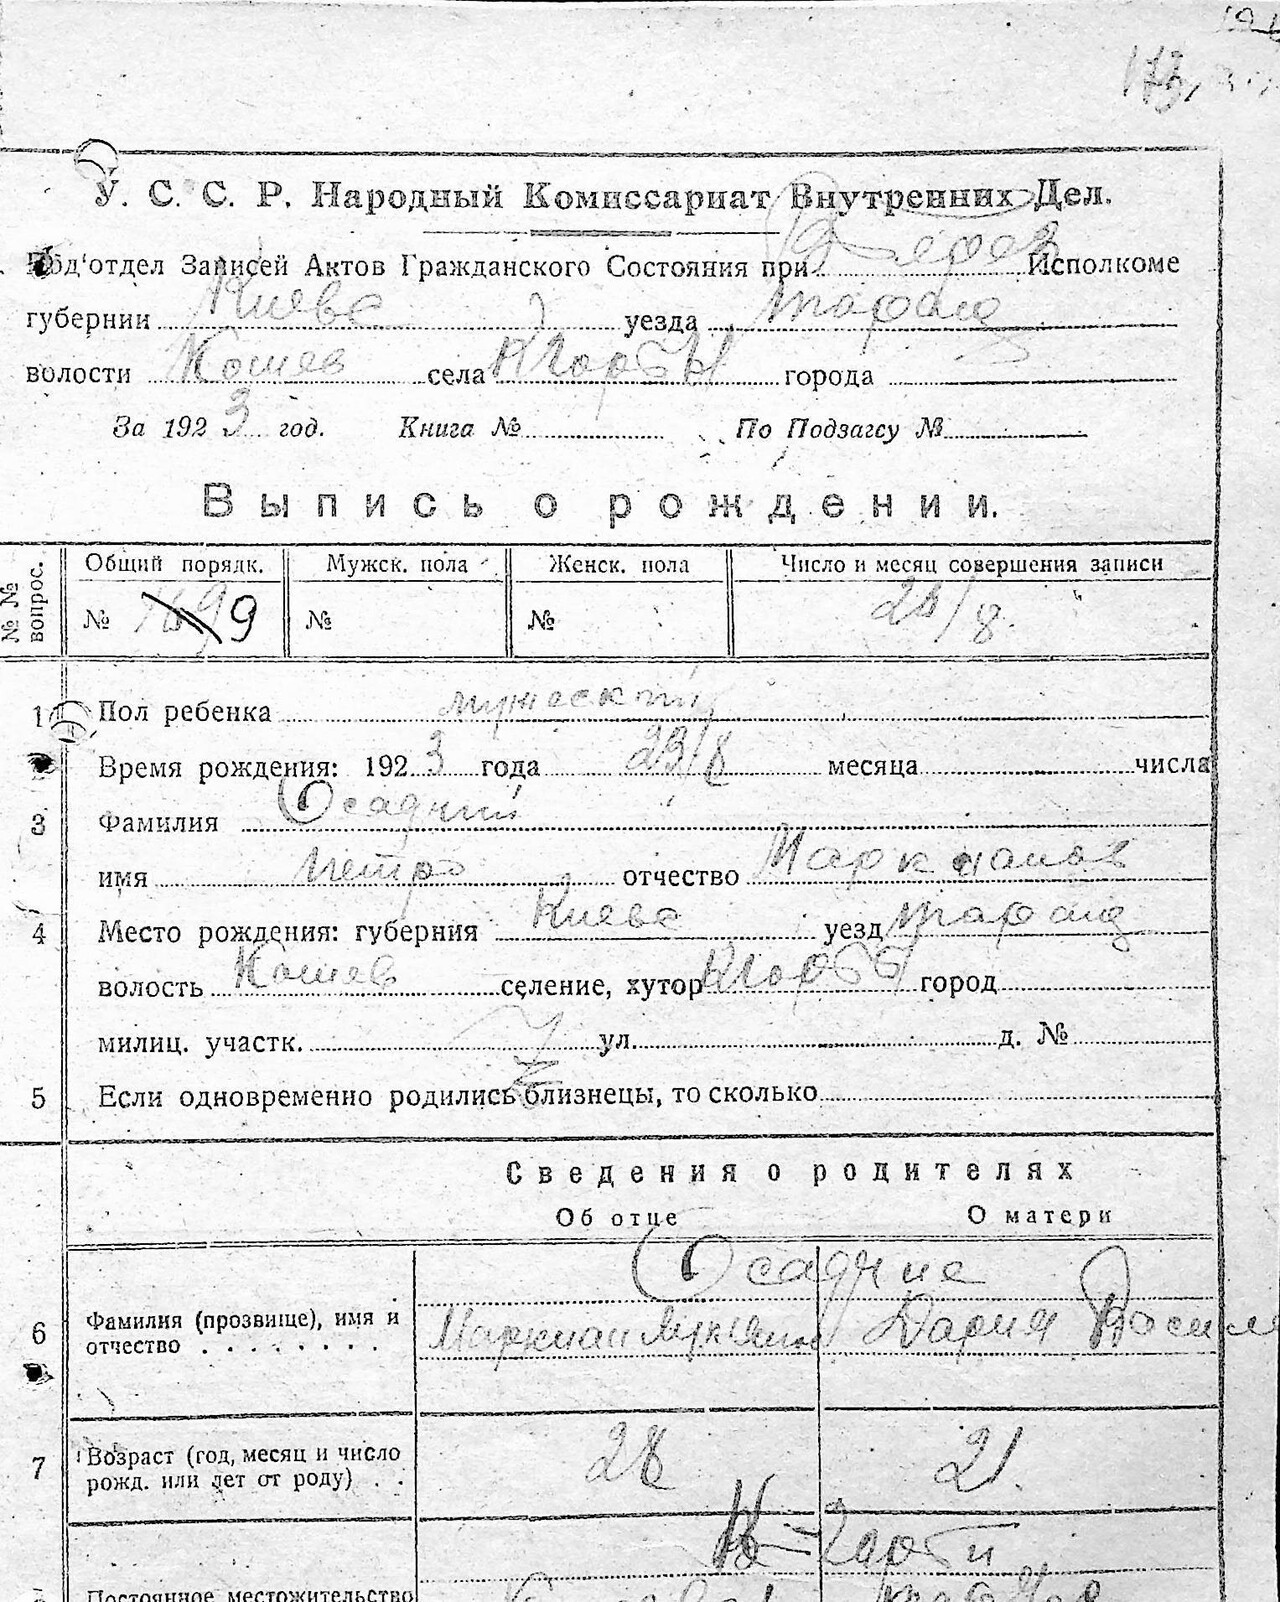 173
У. С. С. Р. Народный Комиссариат Внутренних Дел.
Под'отдел Записей Актов Гражданского Состояния при Исполкоме
губернии Киевс уезда Таращ
волости Кошев села города
За 1923 год. Книга № По Подзагсу №
Выпись о рождении.
№ № вопрос. Общий порядк. Мужск. пола Женск. пола Число и месяц совершения записи
№ 9 № № 24/8.
1 Пол ребенка мужеский
Время рождения: 1923 года 23/8 месяца числа
3 Фамилия Осадчий
имя Петро отчество Маркианов
4 Место рождения: губерния Киевс уезд Таращ
волость Кошев селение, хутор город
милиц. участк. ул. д. №
5 Если одновременно родились близнецы, то сколько
Сведения о родителях
Об отце О матери
Осадчие
6 Фамилия (прозвище), имя и отчество Маркиан Лукьянов Дария Васил
7 Возраст (год, месяц и число рожд. или лет от роду) 28 21.
Постоянное местожительство